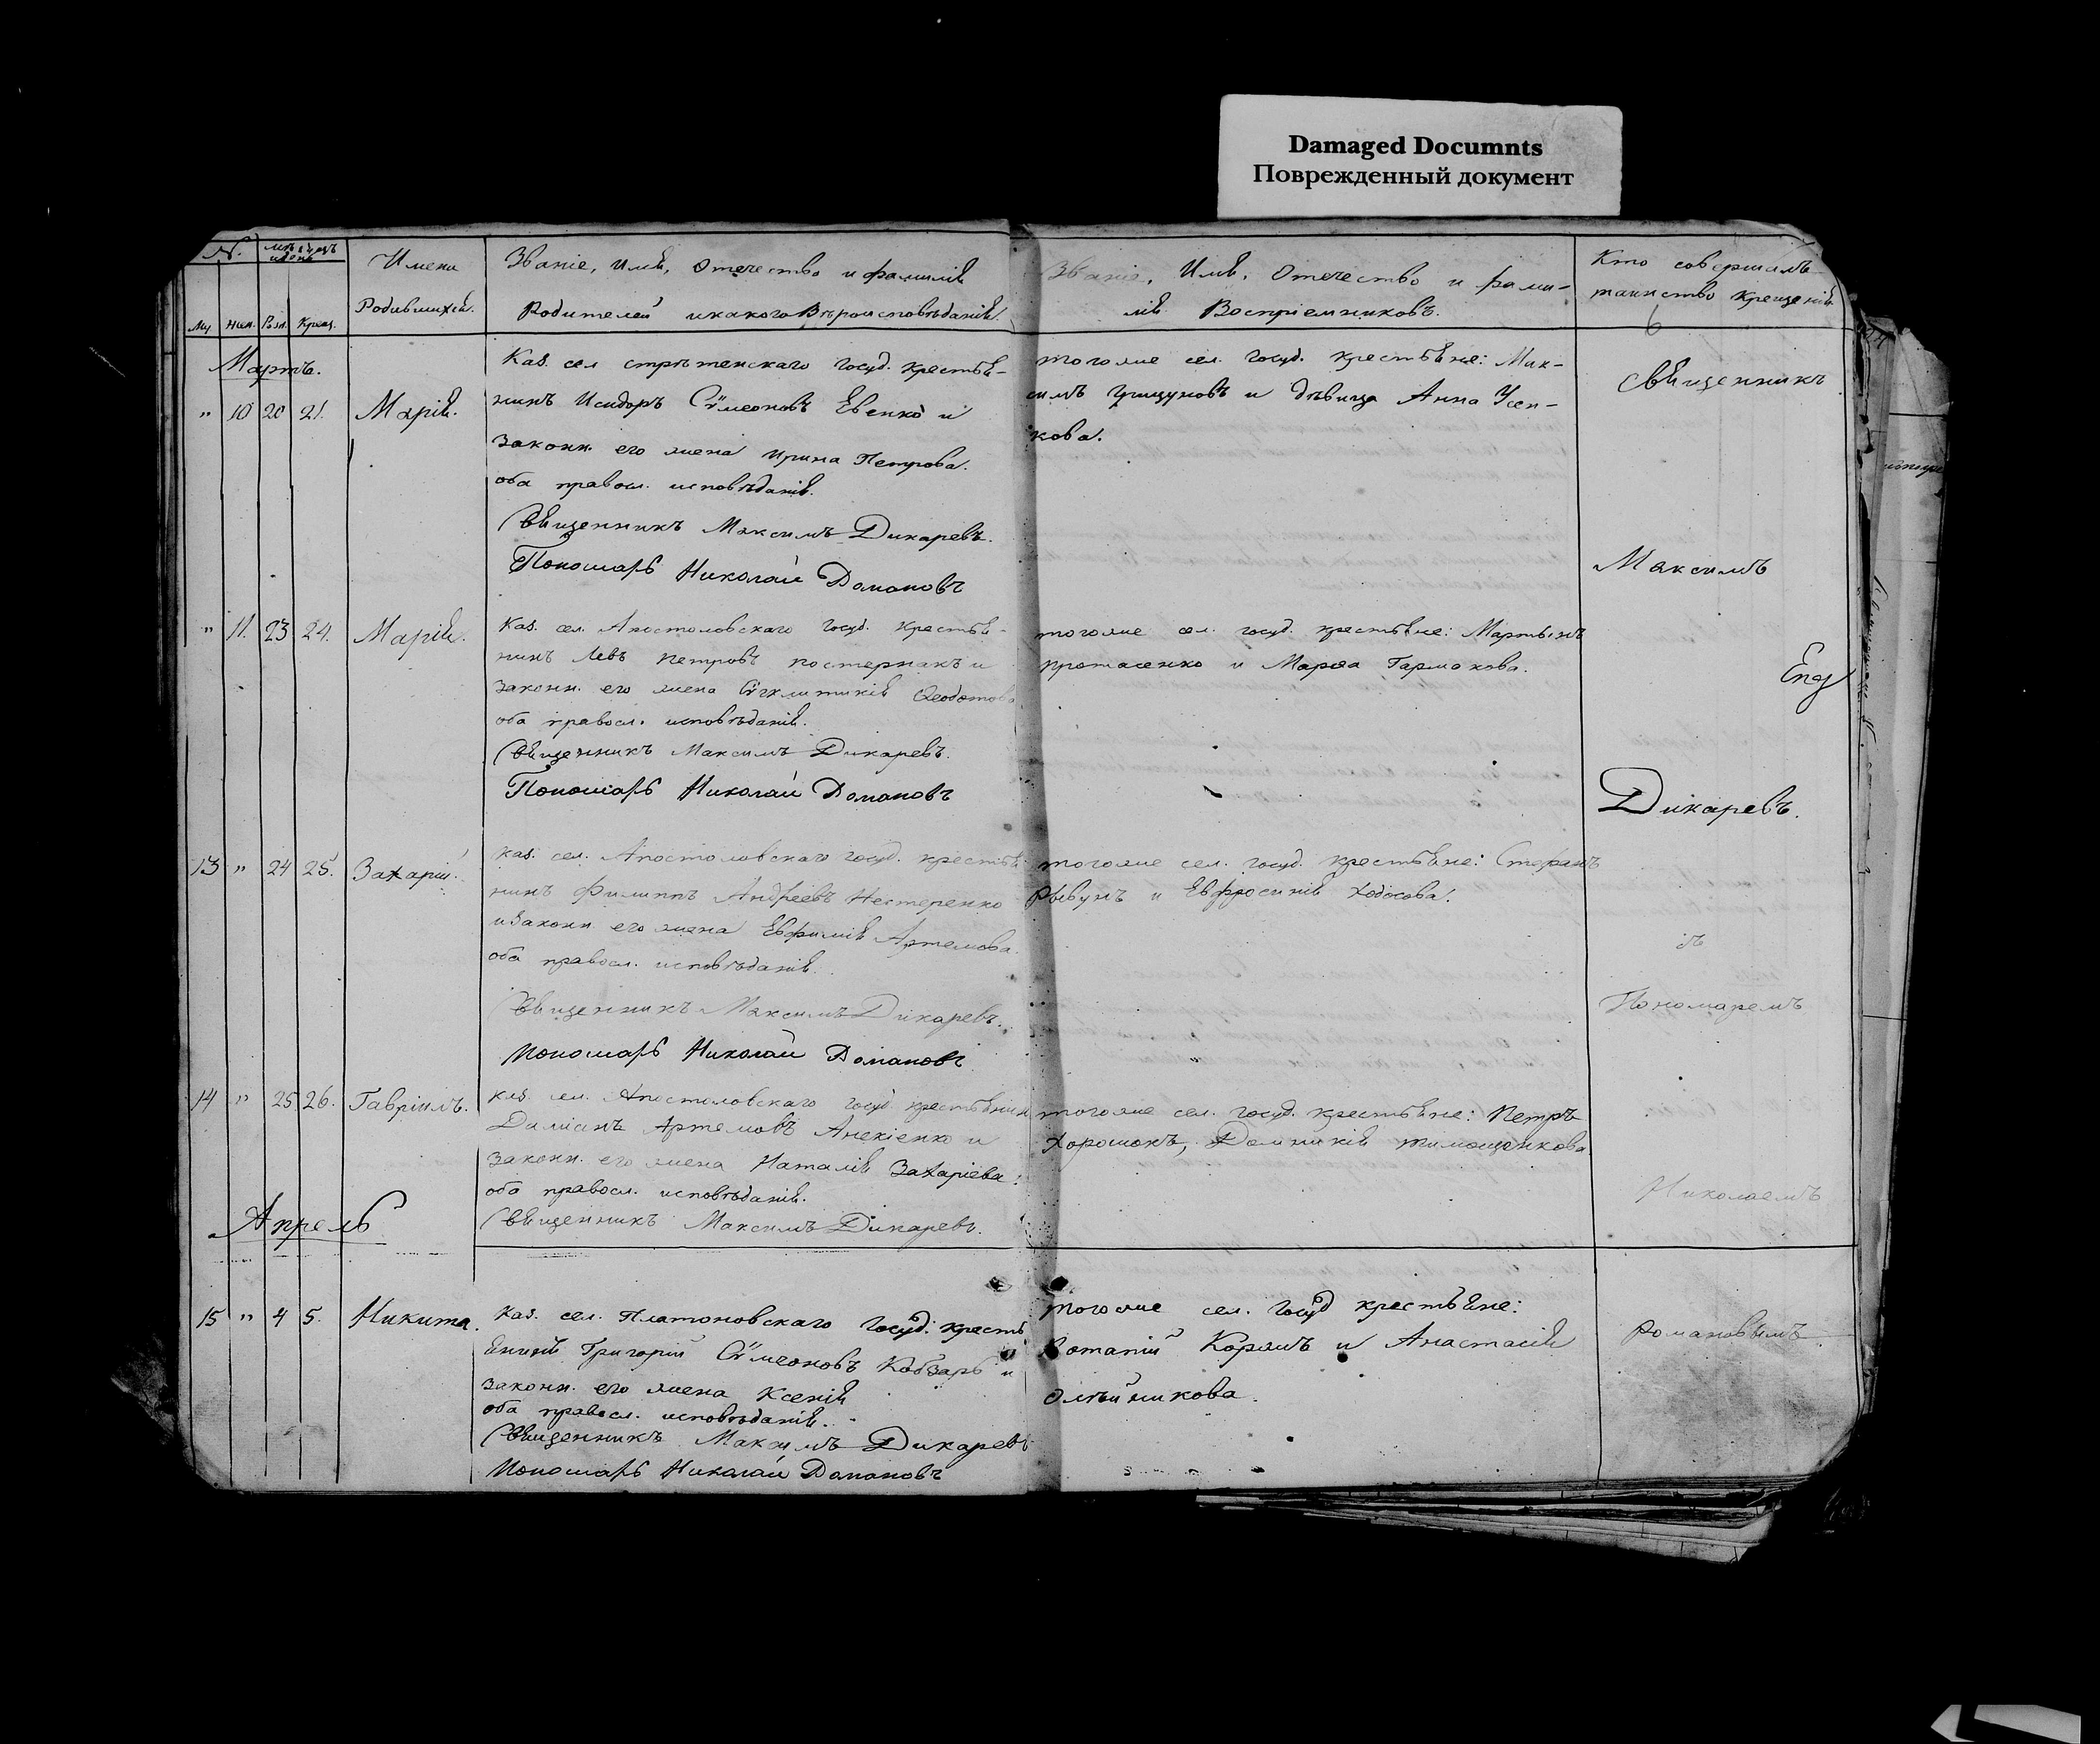 Damaged Documnts
Поврежденный документ
№.
мѣсяцъ
и день
Имена
Родившихся.
Званіе, Имя, Отечество и фамилія
Родителей и какого Вѣроисповѣданія.
Званіе, Имя, Отечество и фами-
лія Воспріемниковъ.
Кто совершалъ
таинство крещенія
Му. жен. Рож. Крещ.
Мартъ.
" 10 20 21. Марія.
Каз. сел стрѣтенскаго госуд. крестья-
нинъ Исидоръ Сѵмеоновъ Евенко и
законн. его жена Ирина Петрова.
оба правосл. исповѣданія.
Священникъ Максимъ Дикаревъ.
Пономарь Николай Романовъ
тогоже сел. госуд. крестьяне: Мак-
симъ и дѣвица Анна Усен-
кова.
Священникъ
Максимъ
" 11. 23 24. Марія.
Каз. сел. Апостоловскаго госуд. крестья-
нинъ Левъ Петровъ постернакъ и
законн. его жена Сѵгклитикія Ѳеодотова
оба правосл. исповѣданія.
Священникъ Максимъ Дикаревъ.
Пономарь Николай Романовъ
тогоже сел. госуд. крестьяне: Мартынъ
протасенко и Марѳа Гармакова.
Дикаревъ.
13 " 24 25. Захарій.
каз. сел. Апостоловскаго госуд. крестья
нинъ Филиппъ Андреевъ Нестеренко
и законн его жена Евфимія Артемова.
оба правосл. исповѣданія.
Священникъ Максимъ Дикаревъ.
Пономарь Николай Романовъ
тогоже сел. госуд. крестьяне: Стефанъ
Рывунъ и Евфросинія Ходосова.
съ
Пономаремъ
14 " 25 26. Гавріилъ.
каз. сел. Апостоловскаго госуд. крестьянин
Даміанъ Артемовъ Анекіенко и
законн. его жена Наталія Захаріева.
оба правосл. исповѣданія.
Священникъ Максимъ Дикаревъ.
тогоже сел. госуд. крестьяне: Петръ
Хорошокъ, Домникія тимощенкова
Николаемъ
Апрель
15 " 4 5. Никита.
Каз. сел. Платоновскаго госуд. кресть
янинъ Григорій Сѵмеоновъ Кобзарь и
законн. его жена Ксенія
оба правосл. исповѣданія.
Священникъ Максимъ Дикаревъ
Пономарь Николай Романовъ
тогоже сел. госуд крестьяне:
Потапій Коржъ и Анастасія
Олѣйникова.
Романовымъ